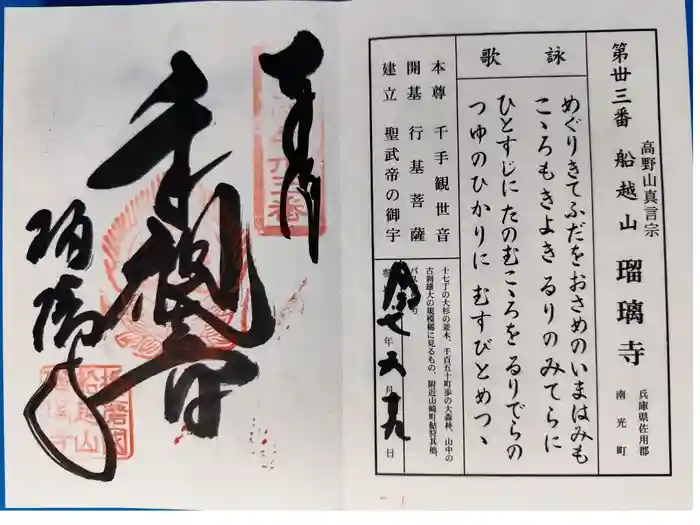 第丗三番 船越山 瑠璃寺
高野山真言宗
兵庫県佐用郡
南光町
詠歌
めぐりきてふだをおさめのいまはみも
こゝろもきよきるりのみてらに
ひとすじにたのむこゝろをるりでらの
つゆのひかりにむすびとめつゝ
本尊 千手観世音
開基 行基菩薩
建立 聖武帝の御宇
十七丁の大杉の並木、千百五十町歩の大森林、山中の
古刹雄大の規模稀に見るもの、附近山崎町鮎狩其他、
年 月 日
奉拝
千手観音
瑠璃寺
播磨國
船越山
瑠璃寺